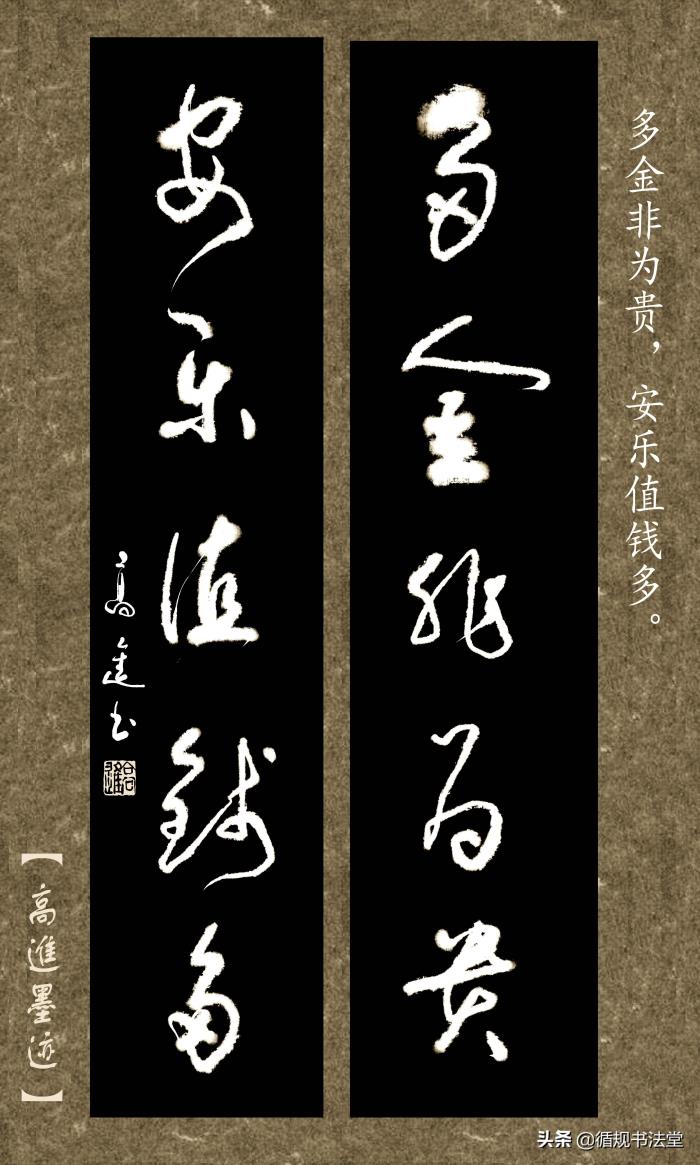 多金非为贵，安乐值钱多。
多金非为贵
安乐值钱多
高進书
【高進墨迹】
头条 @循规书法堂